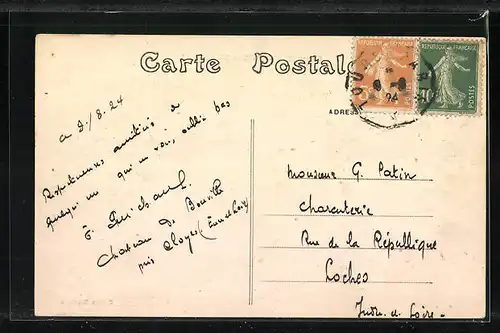 Carte Postale
RÉPUBLIQUE FRANÇAISE
RÉPUBLIQUE FRANÇAISE
POSTES
24
ADRESSE
ce 9/8.24
Respectueuses amitiés de
quelqu'un qui ne vous oublie pas
Château de Bouville
près Cloyes (Eure & Loir)
Monsieur G. Patin
Charcuterie
Rue de la République
Loches
Indre. & Loire.